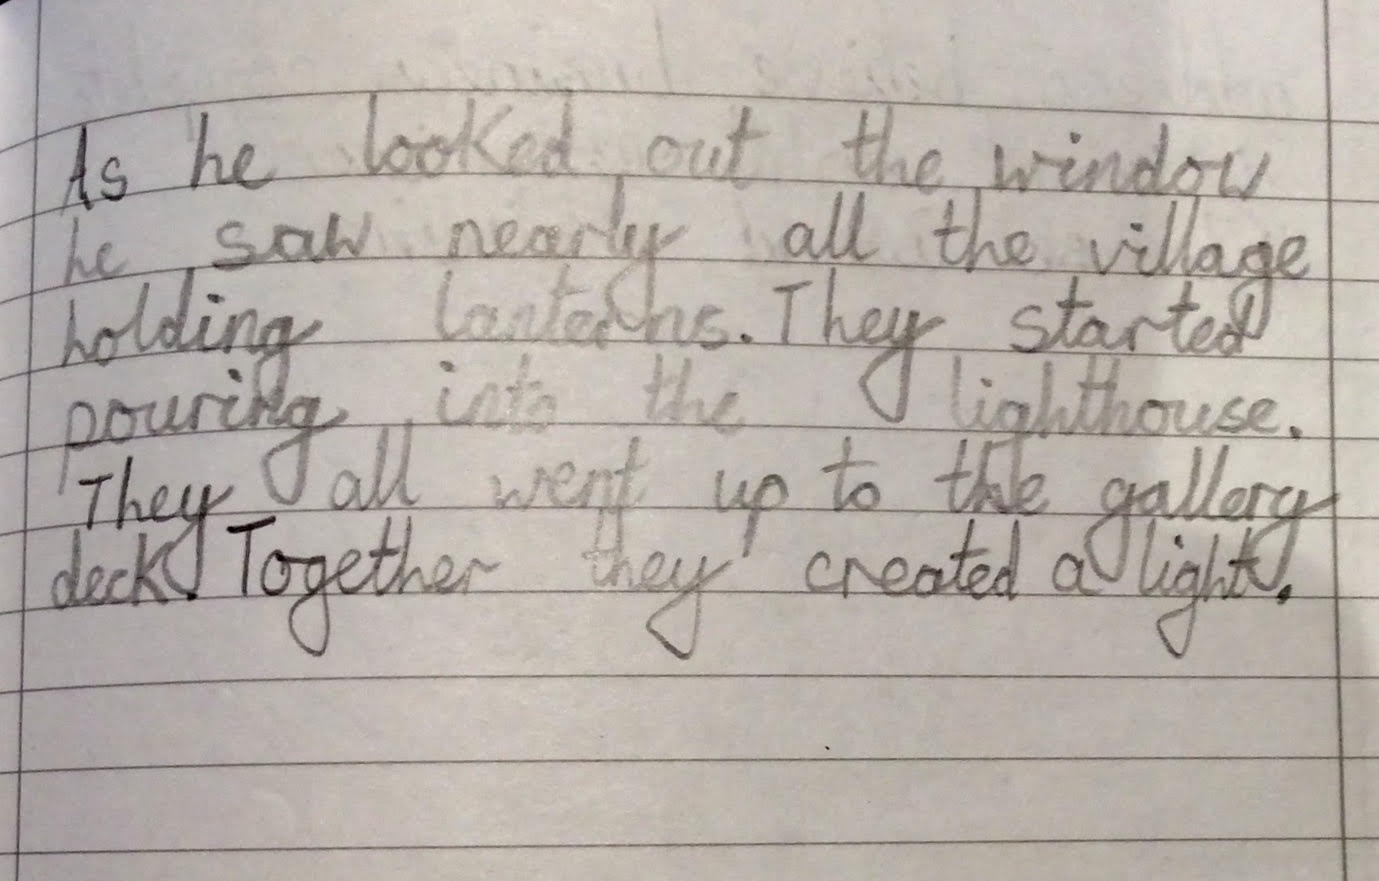 As he looked out the window
he saw nearly all the village
holding lanterns. They started
pouring into the lighthouse.
They all went up to the gallery
deck. Together they created a light.